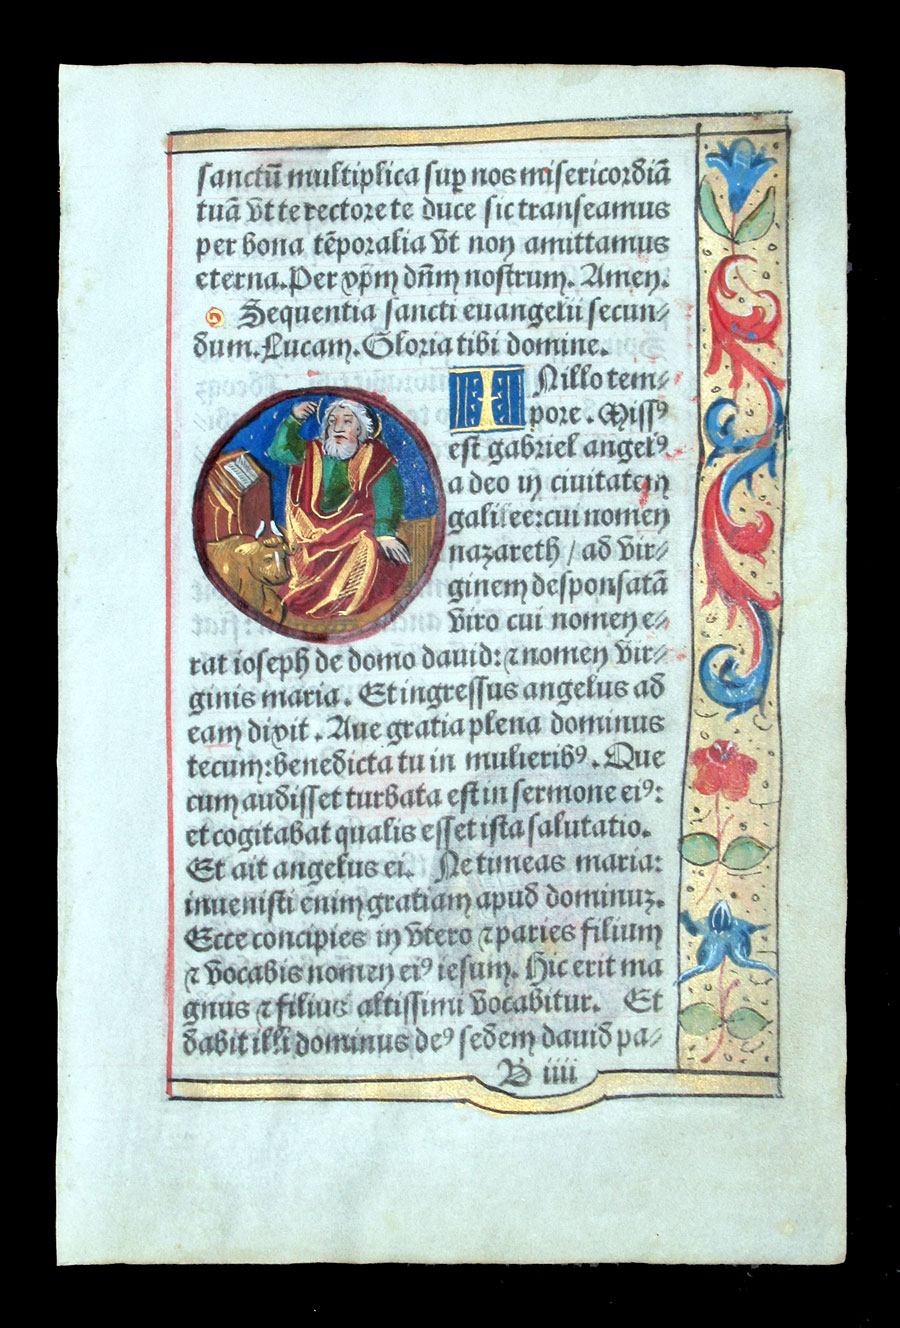 sanctū multiplica sup̲ nos misericordiā
tuā vt te rectore te duce sic transeamus
per bona tēporalia vt non amittamus
eterna. Per xp̄m dn̄m nostrum. Amen.
Sequentia sancti euangelii secun⸗
dum. Lucam. Gloria tibi domine.
IN illo tem⸗
pore. Missꝰ
est gabriel angelꝰ
a deo in ciuitatem
galilee: cui nomen
nazareth / ad vir⸗
ginem desponsatā
viro cui nomen e⸗
rat ioseph de domo dauid: ⁊ nomen vir⸗
ginis maria. Et ingressus angelus ad
eam dixit. Aue gratia plena dominus
tecum: benedicta tu in mulieribꝰ. Que
cum audisset turbata est in sermone eiꝰ:
et cogitabat qualis esset ista salutatio.
Et ait angelus ei. Ne timeas maria:
inuenisti enim gratiam apud dominuz.
Ecce concipies in vtero ⁊ paries filium
⁊ vocabis nomen eiꝰ iesum. Hic erit ma
gnus ⁊ filius altissimi vocabitur. Et
dabit illi dominus deꝰ sedem dauid pa⸗
B iiii